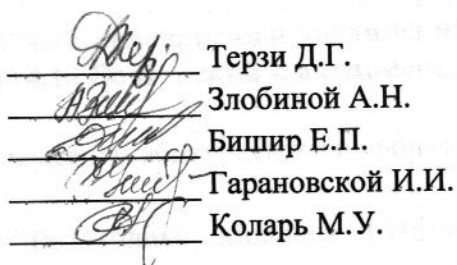 Терзи Д.Г.
Злобиной А.Н.
Бишир Е.П.
Гарановской И.И.
Коларь М.У.